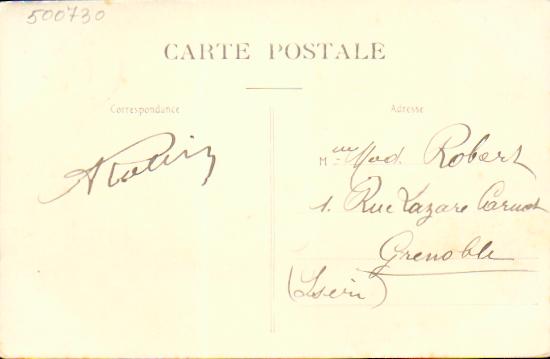 500730
CARTE POSTALE
Correspondance
Adresse
Mlle Mad. Robert
1. Rue Lazare Carnot
Grenoble
(Isère)